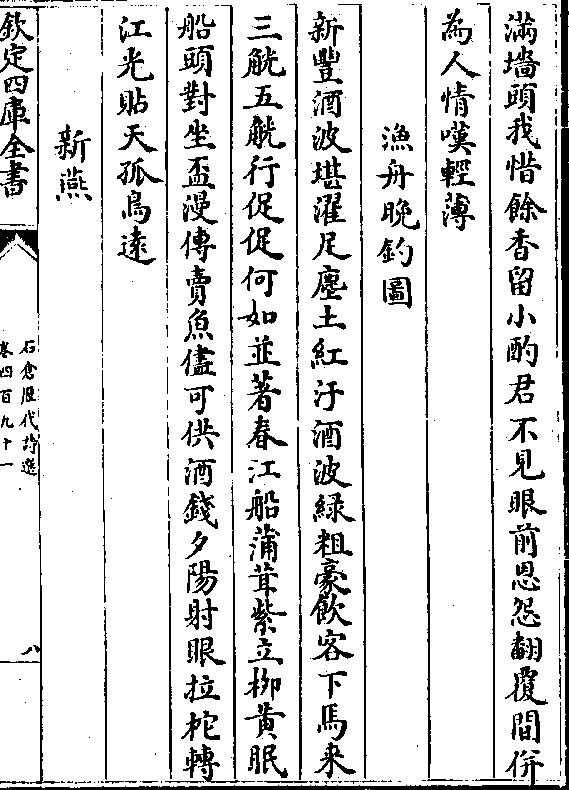 滿墻頭我惜餘香留小酌君不見眼前恩怨翻覆間併
為人情嘆輕薄
漁舟晚釣圖
新豐酒波堪濯足塵土紅汙酒波綠粗豪飲客下馬来
三觥五觥行促促何如並著春江船蒲茸紫立栁黄眠
船頭對坐盃漫傳賣魚儘可供酒錢夕陽射眼拉柁轉
江光貼天孤鳥逺
新燕
欽定四庫全書
石倉歴代詩選
卷四百九十一
八